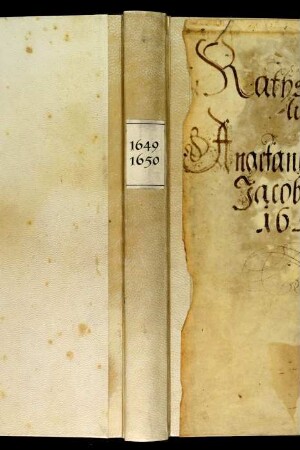 1649
1650
Raths
Angefang
Jacob
16